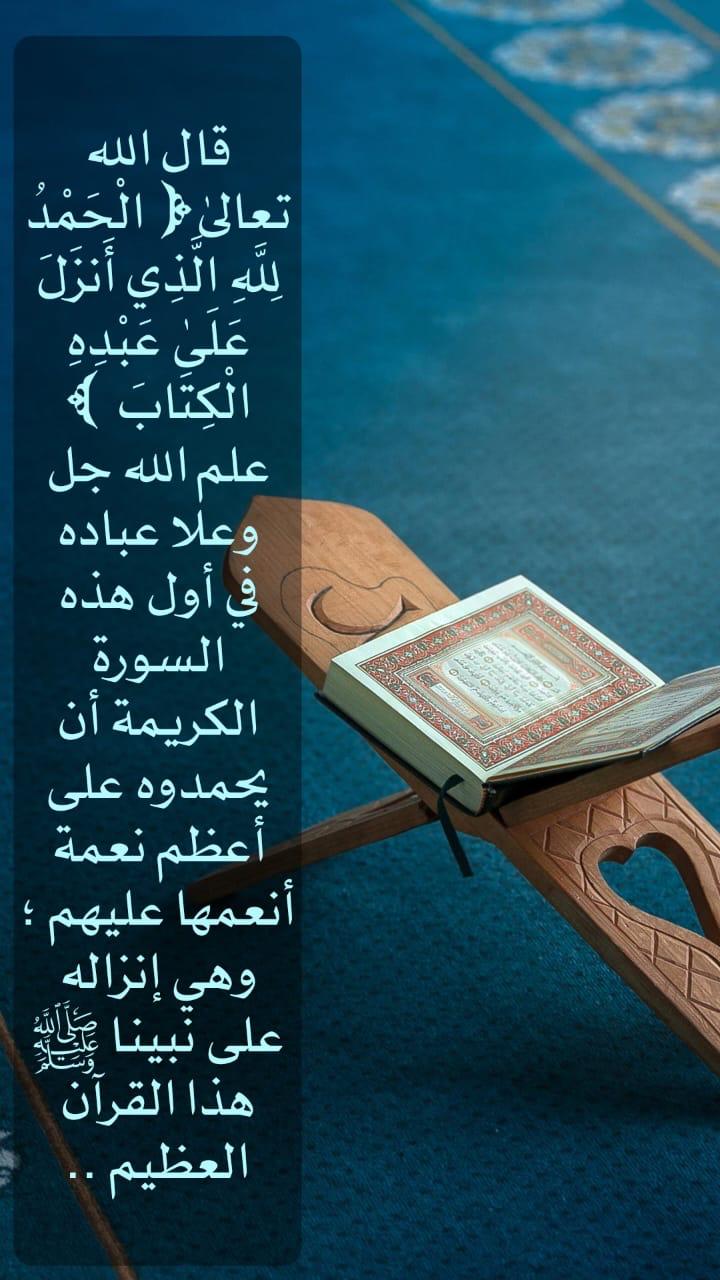 قال الله
تعالىٰ ﴿ الْحَمْدُ
لِلَّهِ الَّذِي أَنزَلَ
عَلَىٰ عَبْدِهِ
الْكِتَابَ ﴾
علم الله جل
وعلا عباده
في أول هذه
السورة
الكريمة أن
يحمدوه على
أعظم نعمة
أنعمها عليهم ؛
وهي إنزاله
على نبينا ﷺ
هذا القرآن
العظيم ..